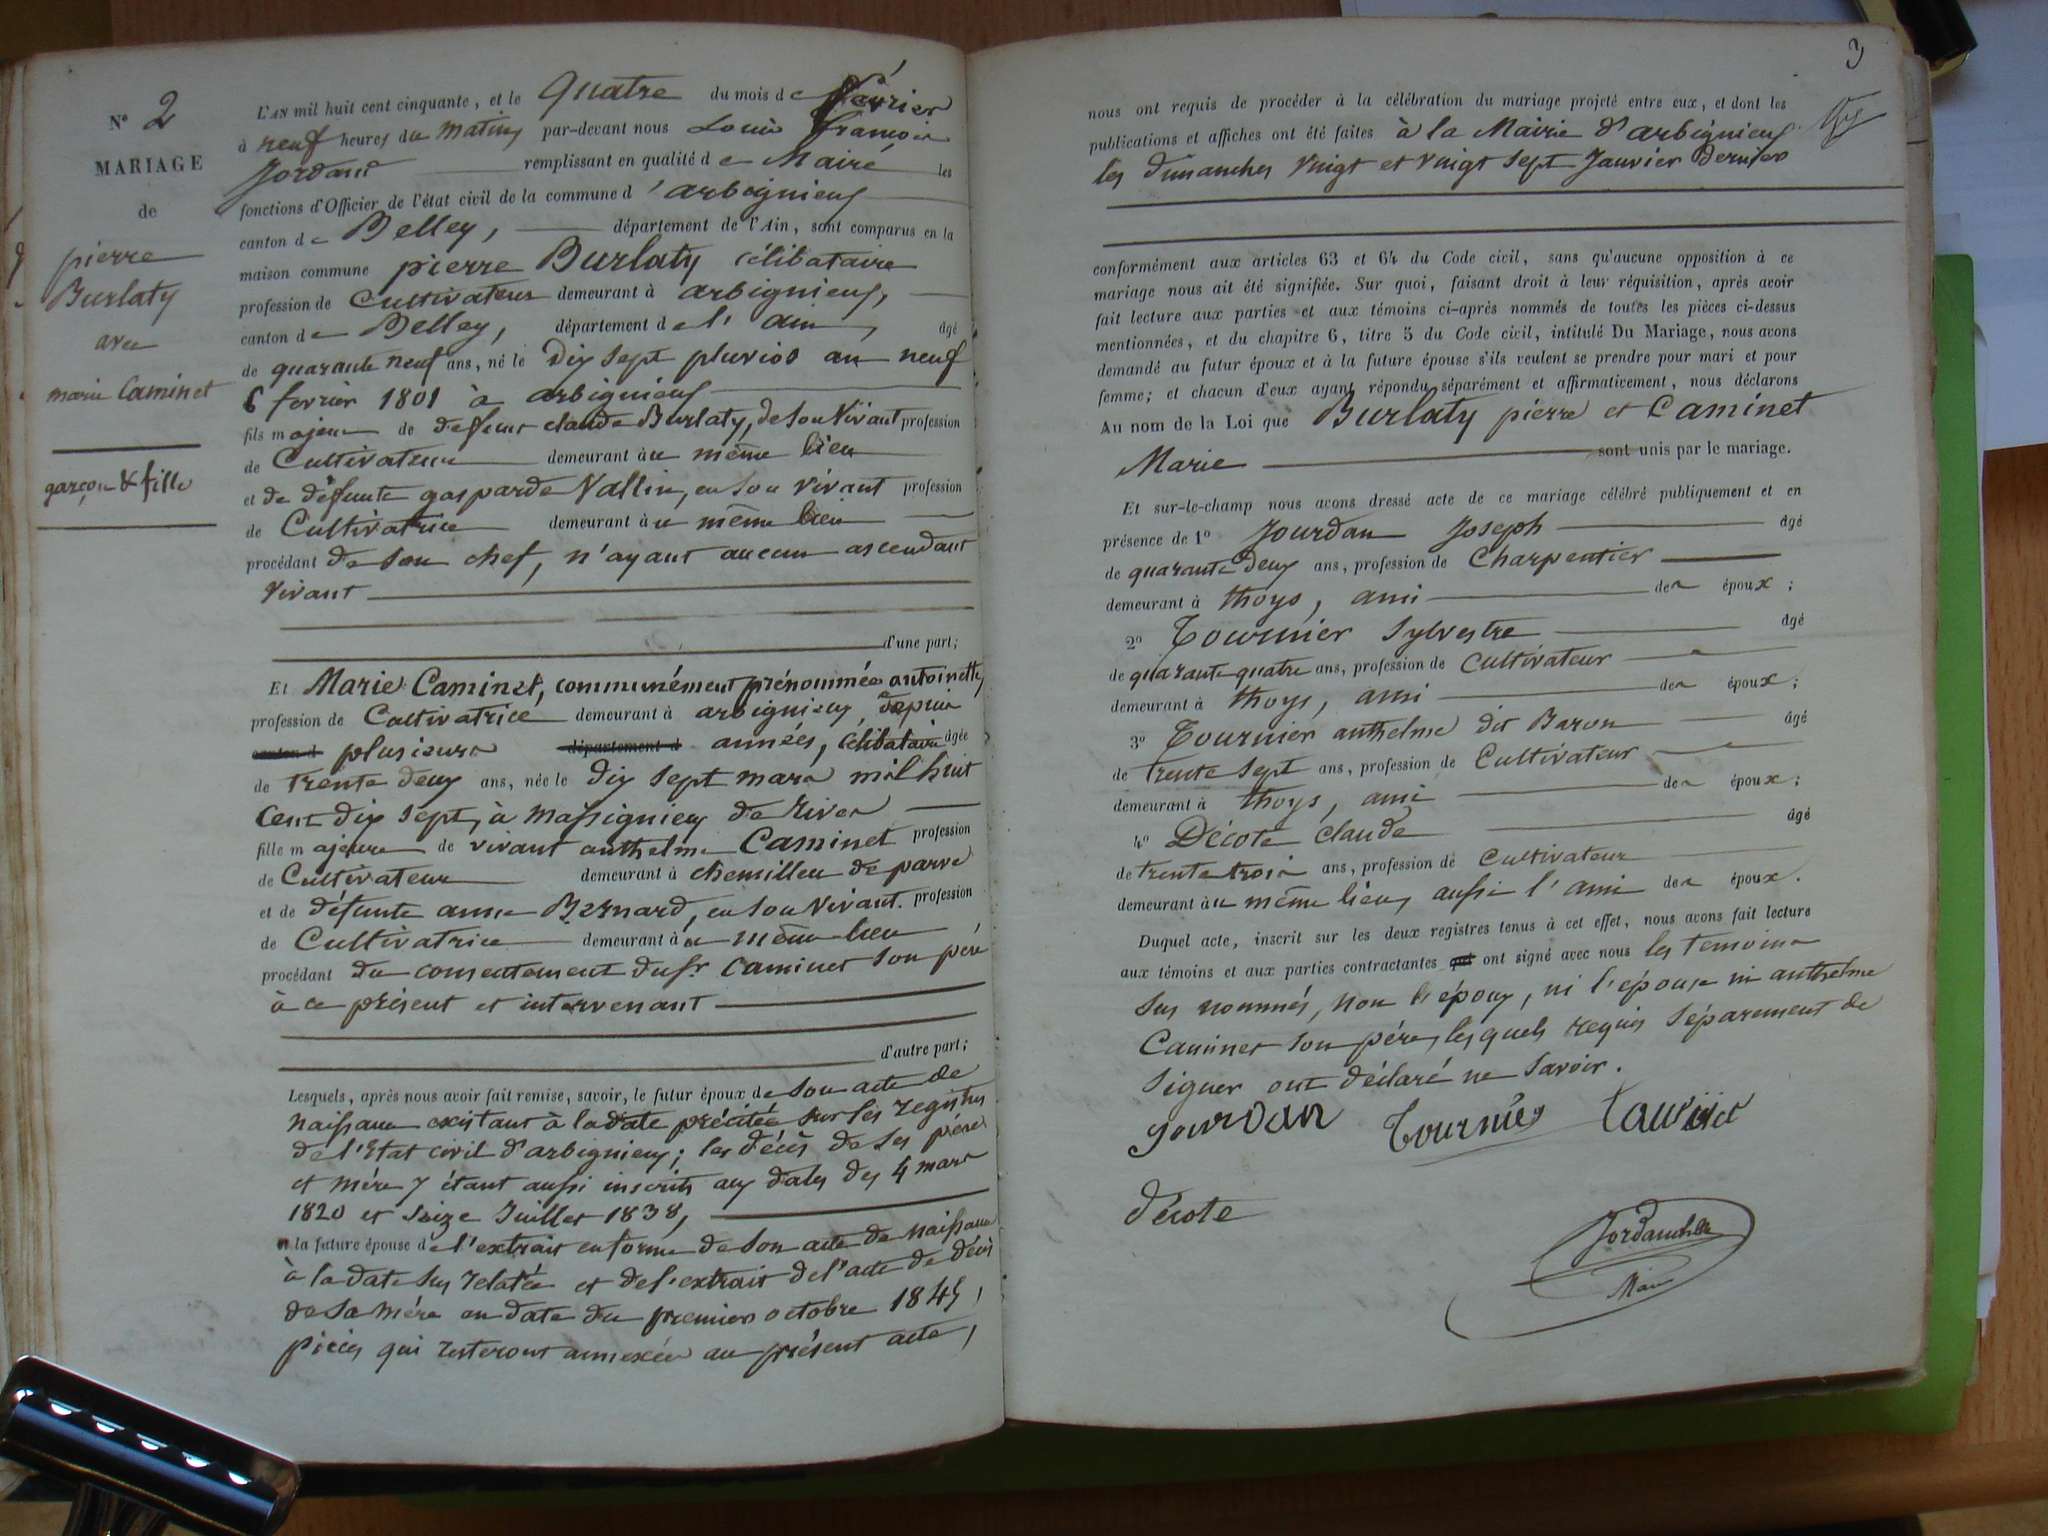 N° 2
MARIAGE
de
pierre
Burlaty
avec
marie Caminet
garçon & fille
L'AN mil huit cent cinquante, et le Quatre du mois de février
à neuf heures du matin par-devant nous Louis françois
Jordand remplissant en qualité de Maire les
fonctions d'Officier de l'état civil de la commune d'arbignieu
canton de Belley, département de l'Ain, sont comparus en la
maison commune pierre Burlaty célibataire
profession de Cultivateur demeurant à arbignieu,
canton de Belley, département de l'ain, âgé
de quarante neuf ans, né le dix sept pluvios an neuf
6 fevrier 1801 à arbignieu
fils majeur de defunt claude Burlaty, de son vivant profession
de Cultivateur demeurant au même lieu
et de défunte gasparde Vallin, en son vivant profession
de Cultivatrice demeurant au même lieu
procédant de son chef, n'ayant aucun ascendant
vivant
d'une part;
Et Marie Caminet, communément prénommée antoinette,
profession de Cultivatrice demeurant à arbignieu, depuis
canton d plusieurs département d années, célibataire âgée
de trente deux ans, née le dix sept mars mil huit
cent dix sept, à massignieu de rives
fille majeure de vivant anthelme Caminet profession
de Cultivateur demeurant à chemilleu de parve
et de défunte anne Bernard, en son vivant profession
de Cultivatrice demeurant au même lieu
procédant du consentement dud. sr. Caminet son père
à ce présent et intervenant
d'autre part;
Lesquels, après nous avoir fait remise, savoir, le futur époux de son acte de
naissance existant à la date précitée sur les registres
de l'Etat civil d'arbignieu; les décès de ses père
et mère y étant aussi inscrits aux dates des 4 mars
1820 et seize Juillet 1838,
et la future épouse de l'extrait en forme de son acte de naissance
à la date sus relatée et de l'extrait de l'acte de décès
de sa mère en date du premier octobre 1845,
pièces qui resteront annexées au présent acte,
3
nous ont requis de procéder à la célébration du mariage projeté entre eux, et dont les
publications et affiches ont été faites à la Mairie d'arbignieu
les dimanches vingt et vingt sept Janvier dernier
conformément aux articles 63 et 64 du Code civil, sans qu'aucune opposition à ce
mariage nous ait été signifiée. Sur quoi, faisant droit à leur réquisition, après avoir
fait lecture aux parties et aux témoins ci-après nommés de toutes les pièces ci-dessus
mentionnées, et du chapitre 6, titre 5 du Code civil, intitulé Du Mariage, nous avons
demandé au futur époux et à la future épouse s'ils veulent se prendre pour mari et pour
femme; et chacun d'eux ayant répondu séparément et affirmativement, nous déclarons
Au nom de la Loi que Burlaty pierre et Caminet
Marie sont unis par le mariage.
Et sur-le-champ nous avons dressé acte de ce mariage célébré publiquement et en
présence de 1° Jourdan Joseph âgé
de quarante deux ans, profession de Charpentier
demeurant à thoys, ami des époux;
2° Tournier Sylvestre âgé
de quarante quatre ans, profession de Cultivateur
demeurant à thoys, ami des époux;
3° Tournier anthelme dit Baron âgé
de trente sept ans, profession de Cultivateur
demeurant à thoys, ami des époux;
4° Décote Claude âgé
de trente trois ans, profession de Cultivateur
demeurant au même lieu, aussi l'ami des époux.
Duquel acte, inscrit sur les deux registres tenus à cet effet, nous avons fait lecture
aux témoins et aux parties contractantes qui ont signé avec nous les temoins
sus nommés, non l'époux, ni l'épouse ni anthelme
Caminet son père, lesquels requis séparement de
signer ont déclaré ne savoir.
jourdan Tournier
décote
Maire